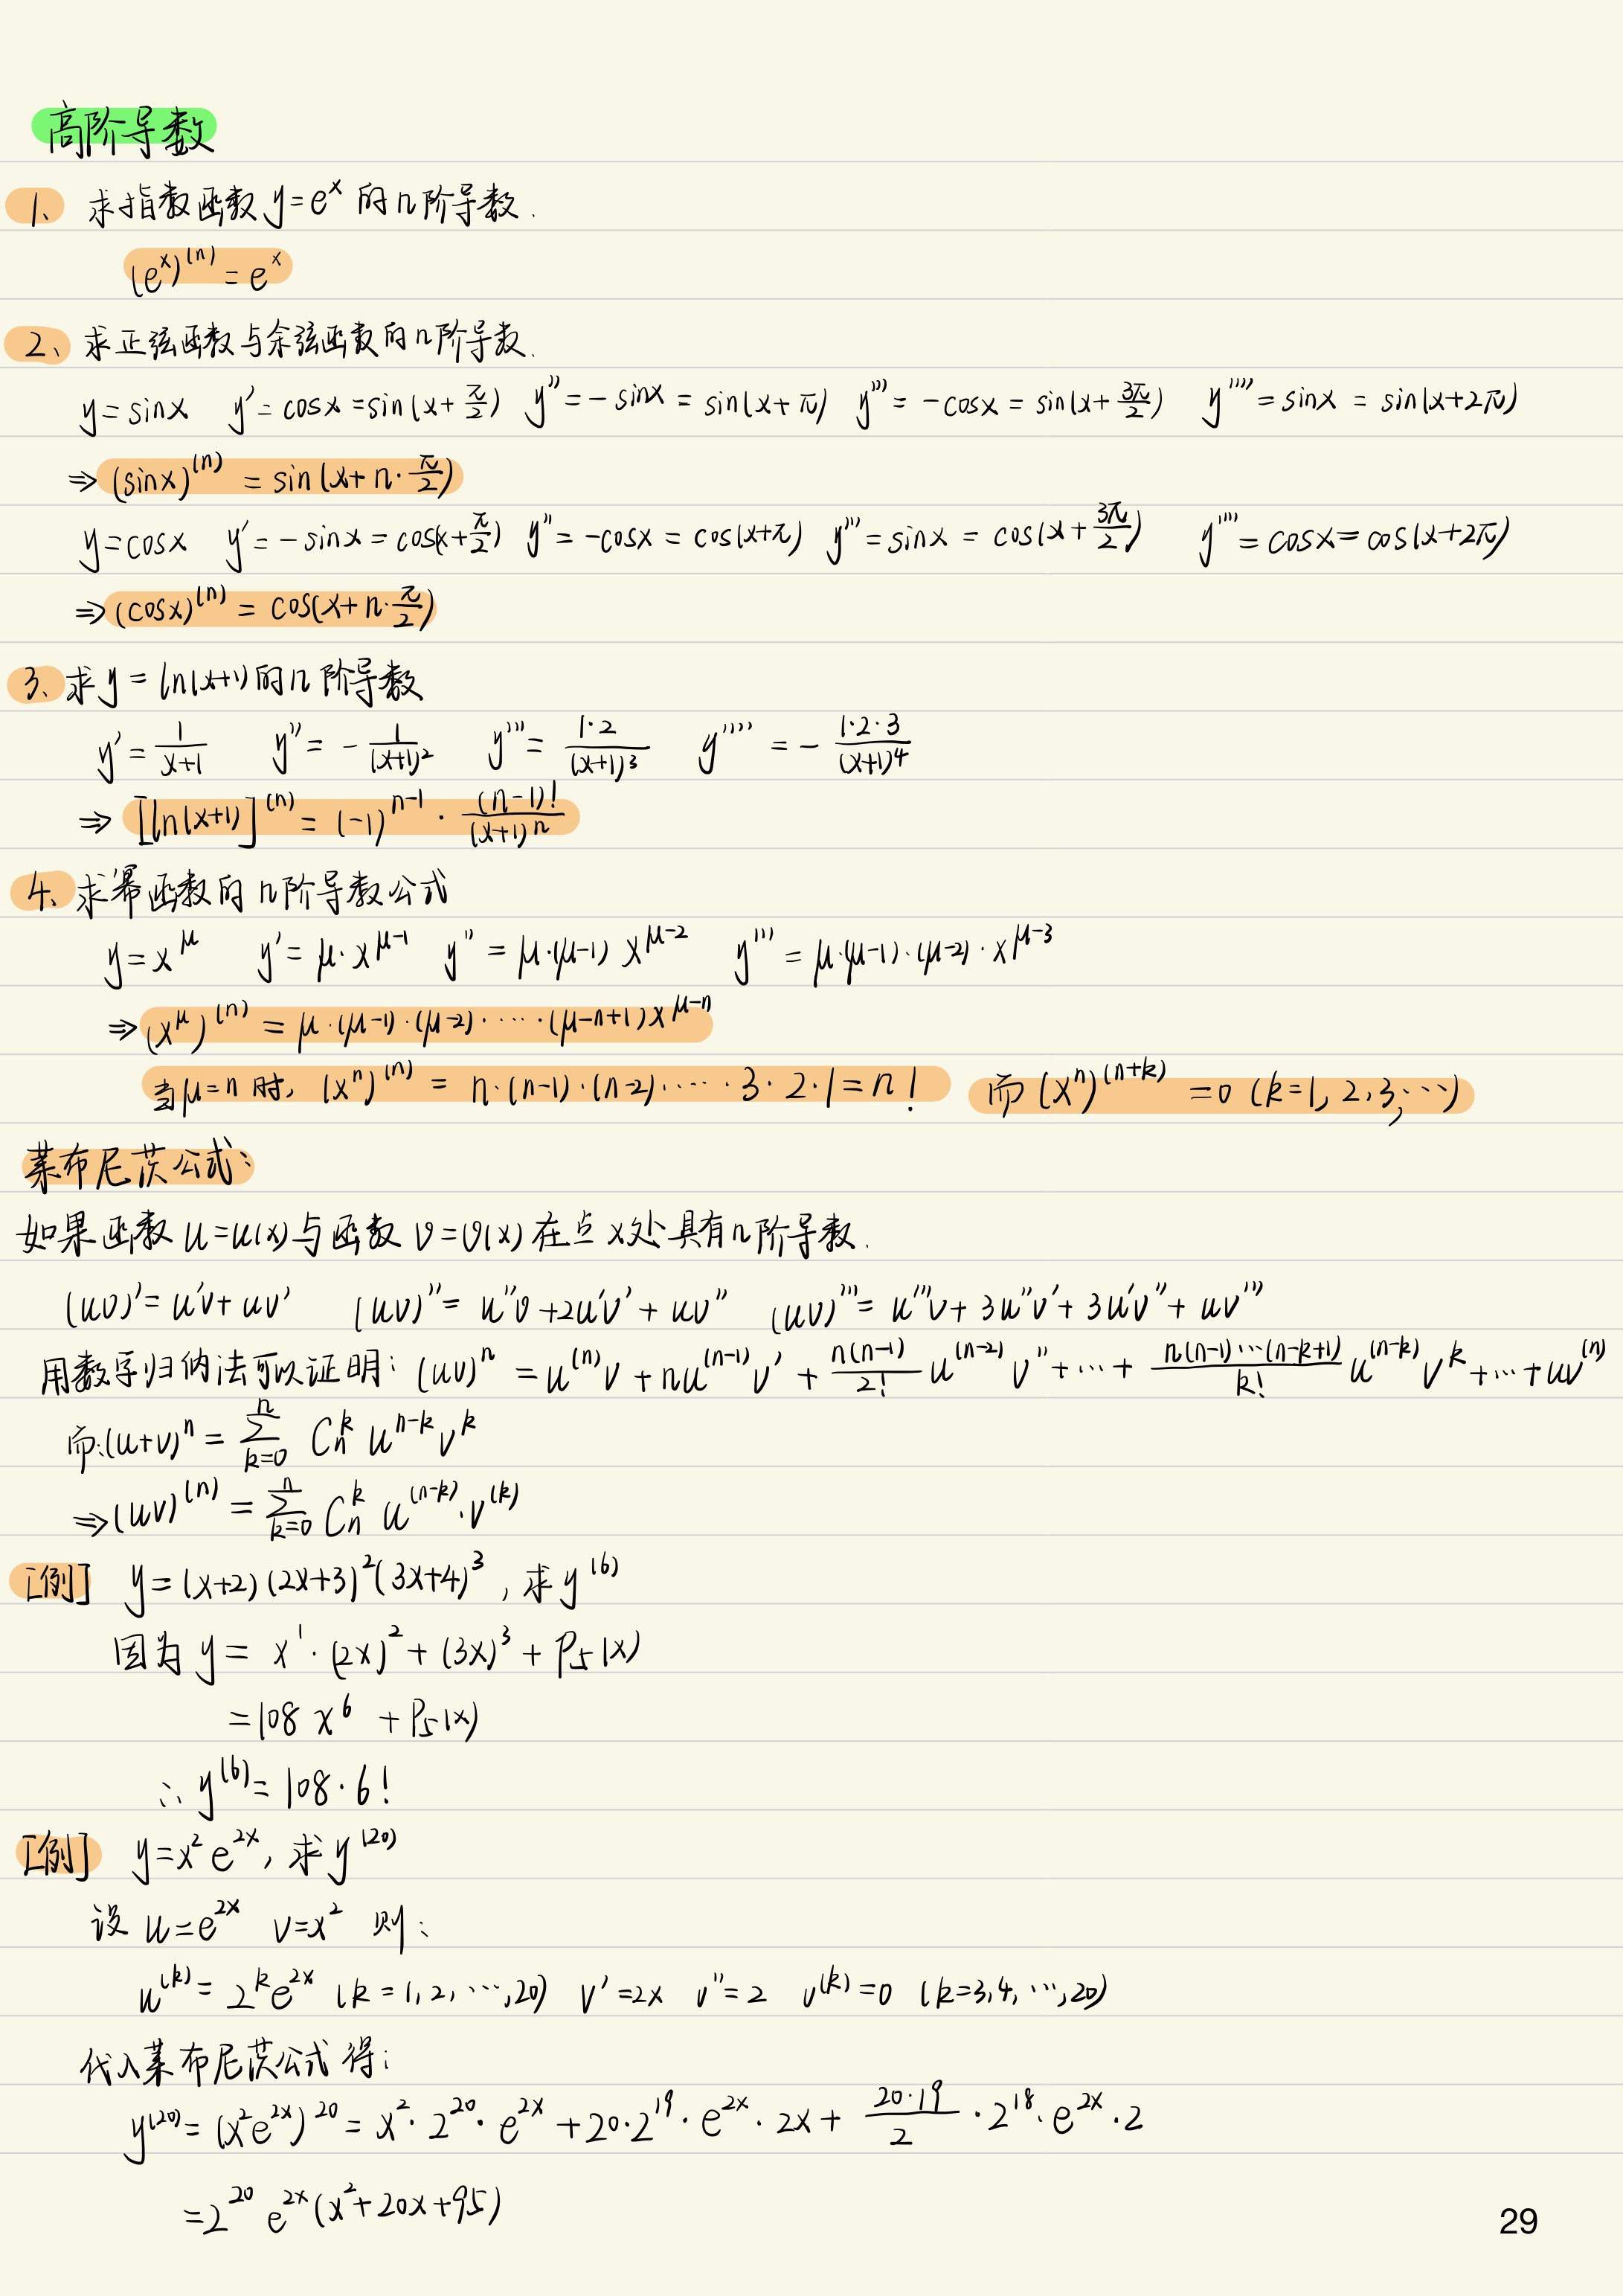 高阶导数
1、求指数函数 y=e^x 的n阶导数.
(e^x)^(n) = e^x
2、求正弦函数与余弦函数的n阶导数.
y=sinx y'=cosx=sin(x+π/2) y''=-sinx=sin(x+π) y'''=-cosx=sin(x+3π/2) y''''=sinx=sin(x+2π)
⇒(sinx)^(n) = sin(x+n·π/2)
y=cosx y'=-sinx=cos(x+π/2) y''=-cosx=cos(x+π) y'''=sinx=cos(x+3π/2) y''''=cosx=cos(x+2π)
⇒(cosx)^(n) = cos(x+n·π/2)
3、求y=ln(x+1)的n阶导数
y'=1/(x+1) y''=-1/(x+1)² y'''=1·2/(x+1)³ y''''=-1·2·3/(x+1)⁴
⇒[ln(x+1)]^(n) = (-1)^(n-1)·(n-1)!/(x+1)^n
4、求幂函数的n阶导数公式
y=x^μ y'=μ·x^(μ-1) y''=μ·(μ-1)x^(μ-2) y'''=μ·(μ-1)·(μ-2)·x^(μ-3)
⇒(x^μ)^(n) = μ·(μ-1)·(μ-2)·…·(μ-n+1)x^(μ-n)
当μ=n时, (x^n)^(n) = n·(n-1)·(n-2)·…·3·2·1=n! 而(x^n)^(n+k) =0 (k=1,2,3,…)
莱布尼茨公式:
如果函数u=u(x)与函数v=v(x)在点x处具有n阶导数.
(uv)'=u'v+uv' (uv)''=u''v+2u'v'+uv'' (uv)'''=u'''v+3u''v'+3u'v''+uv'''
用数学归纳法可以证明: (uv)^n = u^(n)v+nu^(n-1)v'+n(n-1)/2! u^(n-2)v''+…+n(n-1)…(n-k+1)/k! u^(n-k)v^k+…+uv^(n)
而:(u+v)^n = Σ_{k=0}^{n} C_n^k u^{n-k} v^k
⇒(uv)^(n) = Σ_{k=0}^{n} C_n^k u^(n-k)·v^(k)
[例] y=(x+2)(2x+3)²(3x+4)³, 求y^(6)
因为y= x¹·(2x)²+(3x)³+P₅(x)
=108x⁶+P₅(x)
∴y^(6)=108·6!
[例] y=x²e^{2x}, 求y^(20)
设u=e^{2x} v=x² 则:
u^(k)=2^k e^{2x} (k=1,2,…,20) v'=2x v''=2 v^(k)=0 (k=3,4,…,20)
代入莱布尼茨公式得:
y^(20)=(x²e^{2x})^20=x²·2^20·e^{2x}+20·2^19·e^{2x}·2x+20·19/2·2^18·e^{2x}·2
=2^20 e^{2x}(x²+20x+95)
29